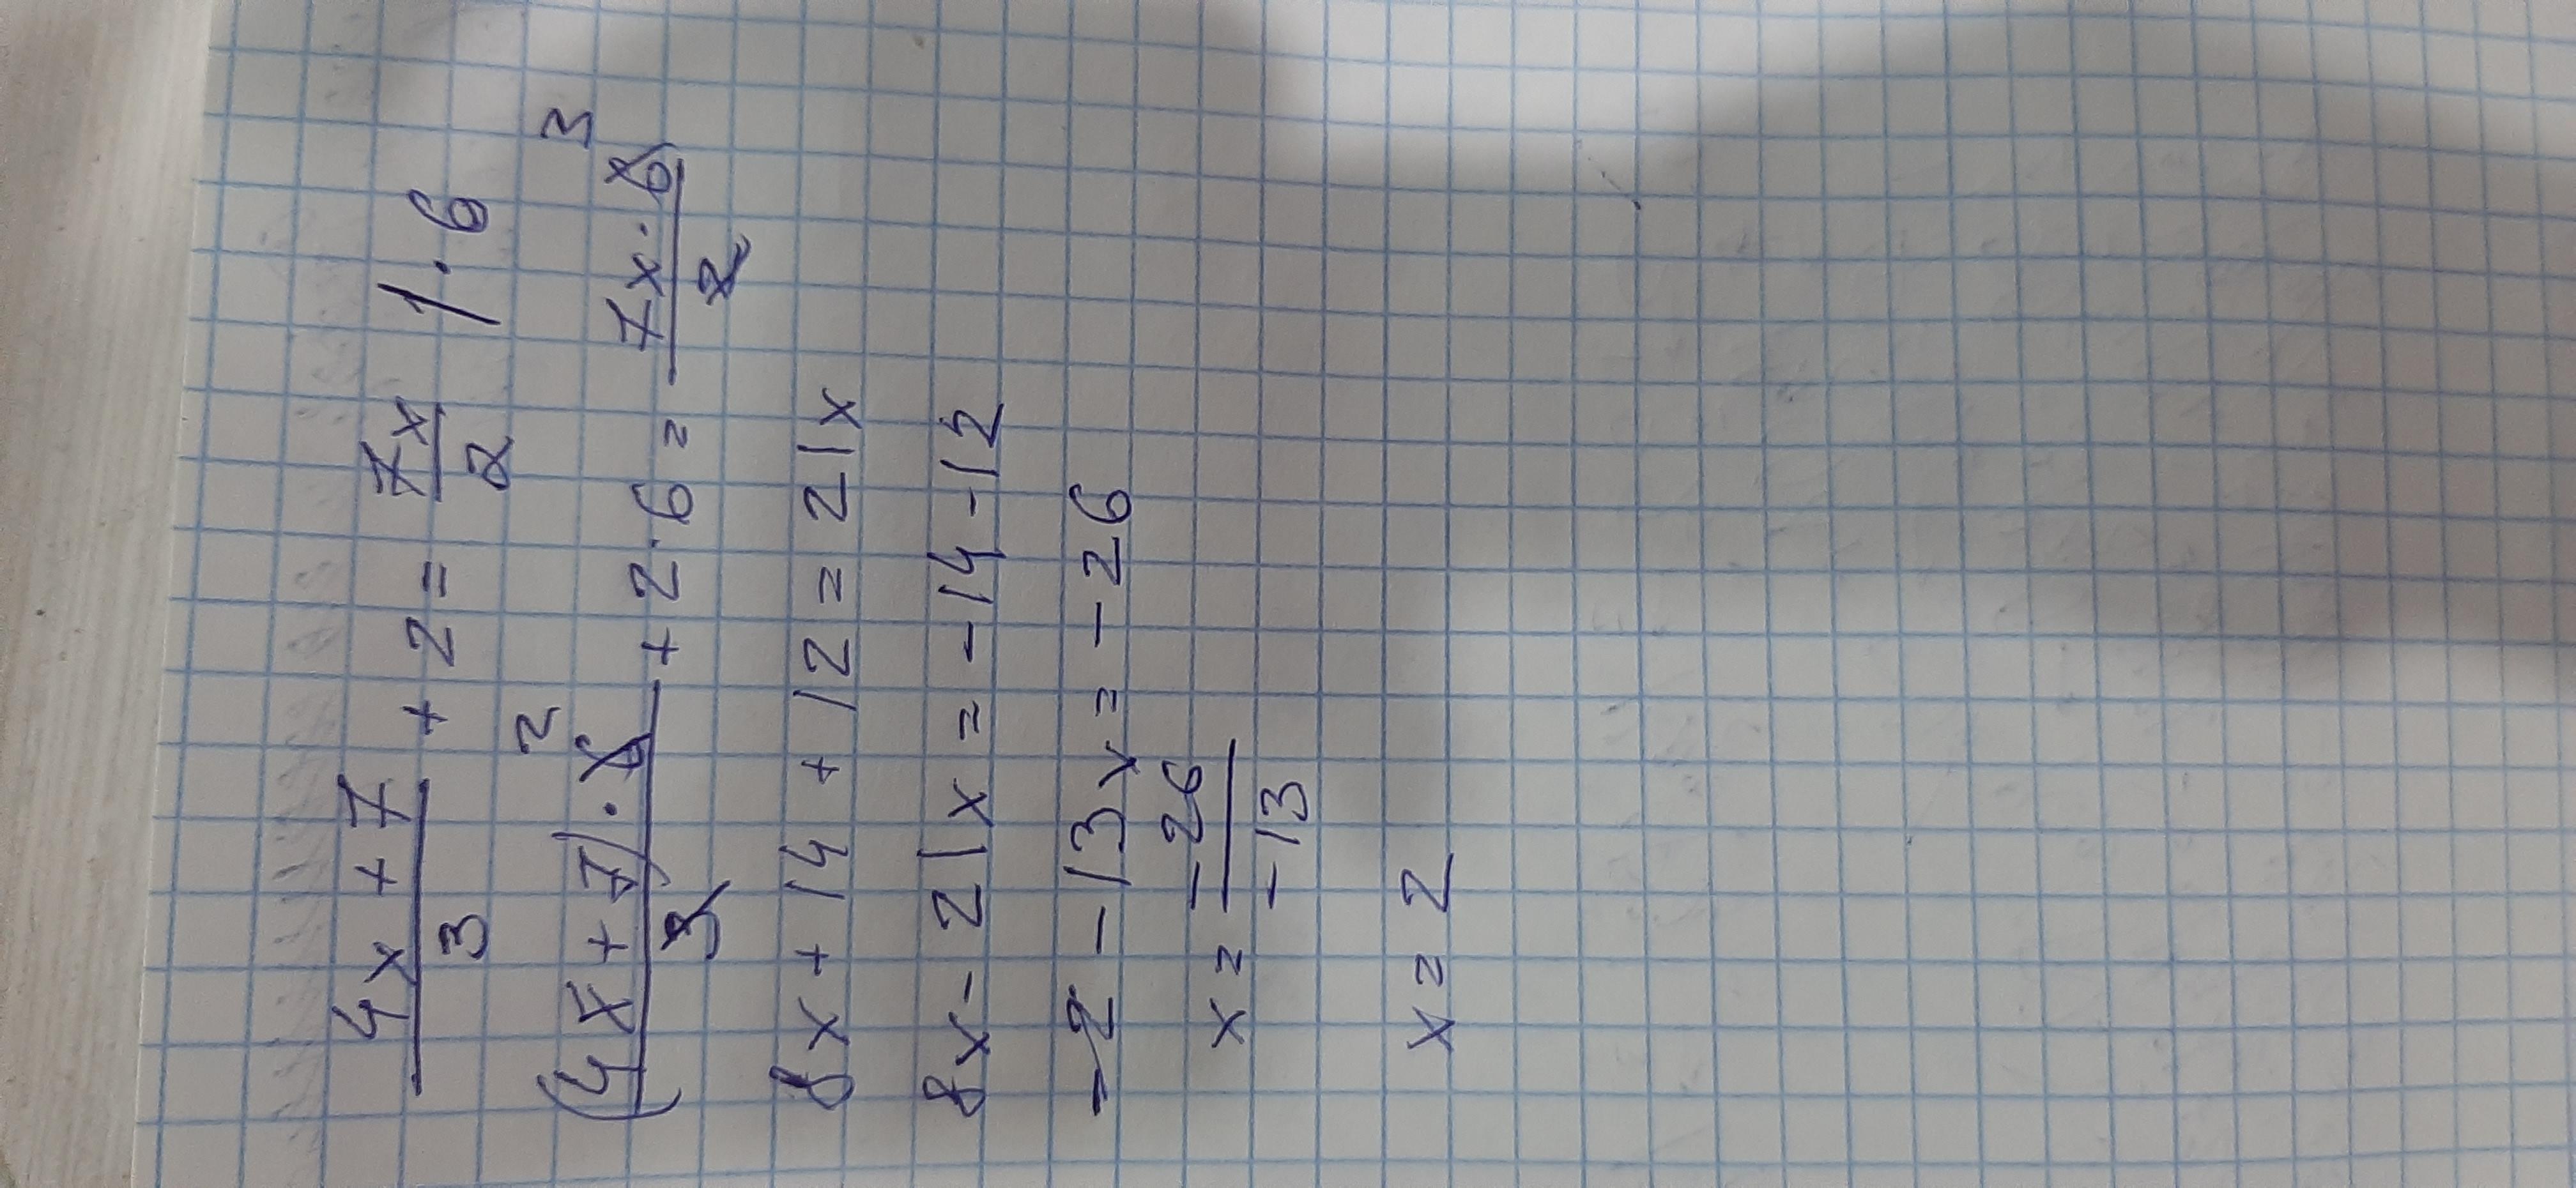 4x + 7 / 3 + 2 = 7x / 2 / · 6
(4x + 7) · 6 2 / 3 + 2 · 6 = 7x · 6 3 / 2
8x + 14 + 12 = 21x
8x - 21x = -14 - 12
- 13x = - 26
x = -26 / -13
x = 2